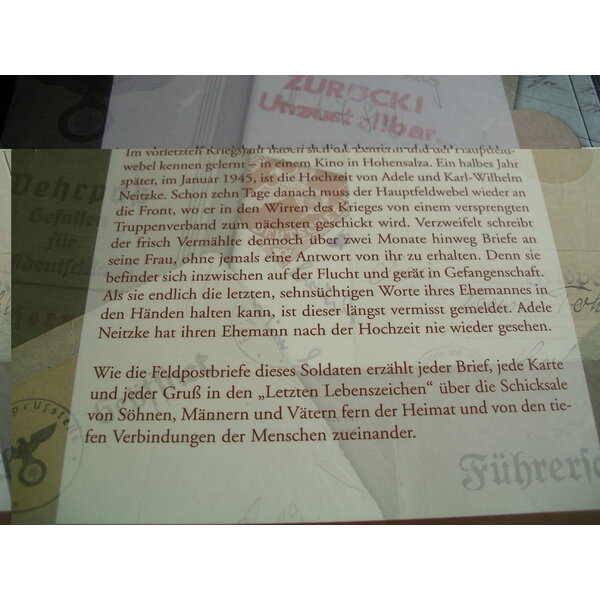 ZURÜCK!
Im vorletzten Kriegsjahr haben sich die
webel kennen gelernt – in einem Kino in Hohensalza. Ein halbes Jahr
später, im Januar 1945, ist die Hochzeit von Adele und Karl-Wilhelm
Neitzke. Schon zehn Tage danach muss der Hauptfeldwebel wieder an
die Front, wo er in den Wirren des Krieges von einem versprengten
Truppenverband zum nächsten geschickt wird. Verzweifelt schreibt
der frisch Vermählte dennoch über zwei Monate hinweg Briefe an
seine Frau, ohne jemals eine Antwort von ihr zu erhalten. Denn sie
befindet sich inzwischen auf der Flucht und gerät in Gefangenschaft.
Als sie endlich die letzten, sehnsüchtigen Worte ihres Ehemannes in
den Händen halten kann, ist dieser längst vermisst gemeldet. Adele
Neitzke hat ihren Ehemann nach der Hochzeit nie wieder gesehen.
Wie die Feldpostbriefe dieses Soldaten erzählt jeder Brief, jede Karte
und jeder Gruß in den „Letzten Lebenszeichen“ über die Schicksale
von Söhnen, Männern und Vätern fern der Heimat und von den tie-
fen Verbindungen der Menschen zueinander.
Wehrp
Gefallen
für
Führersc